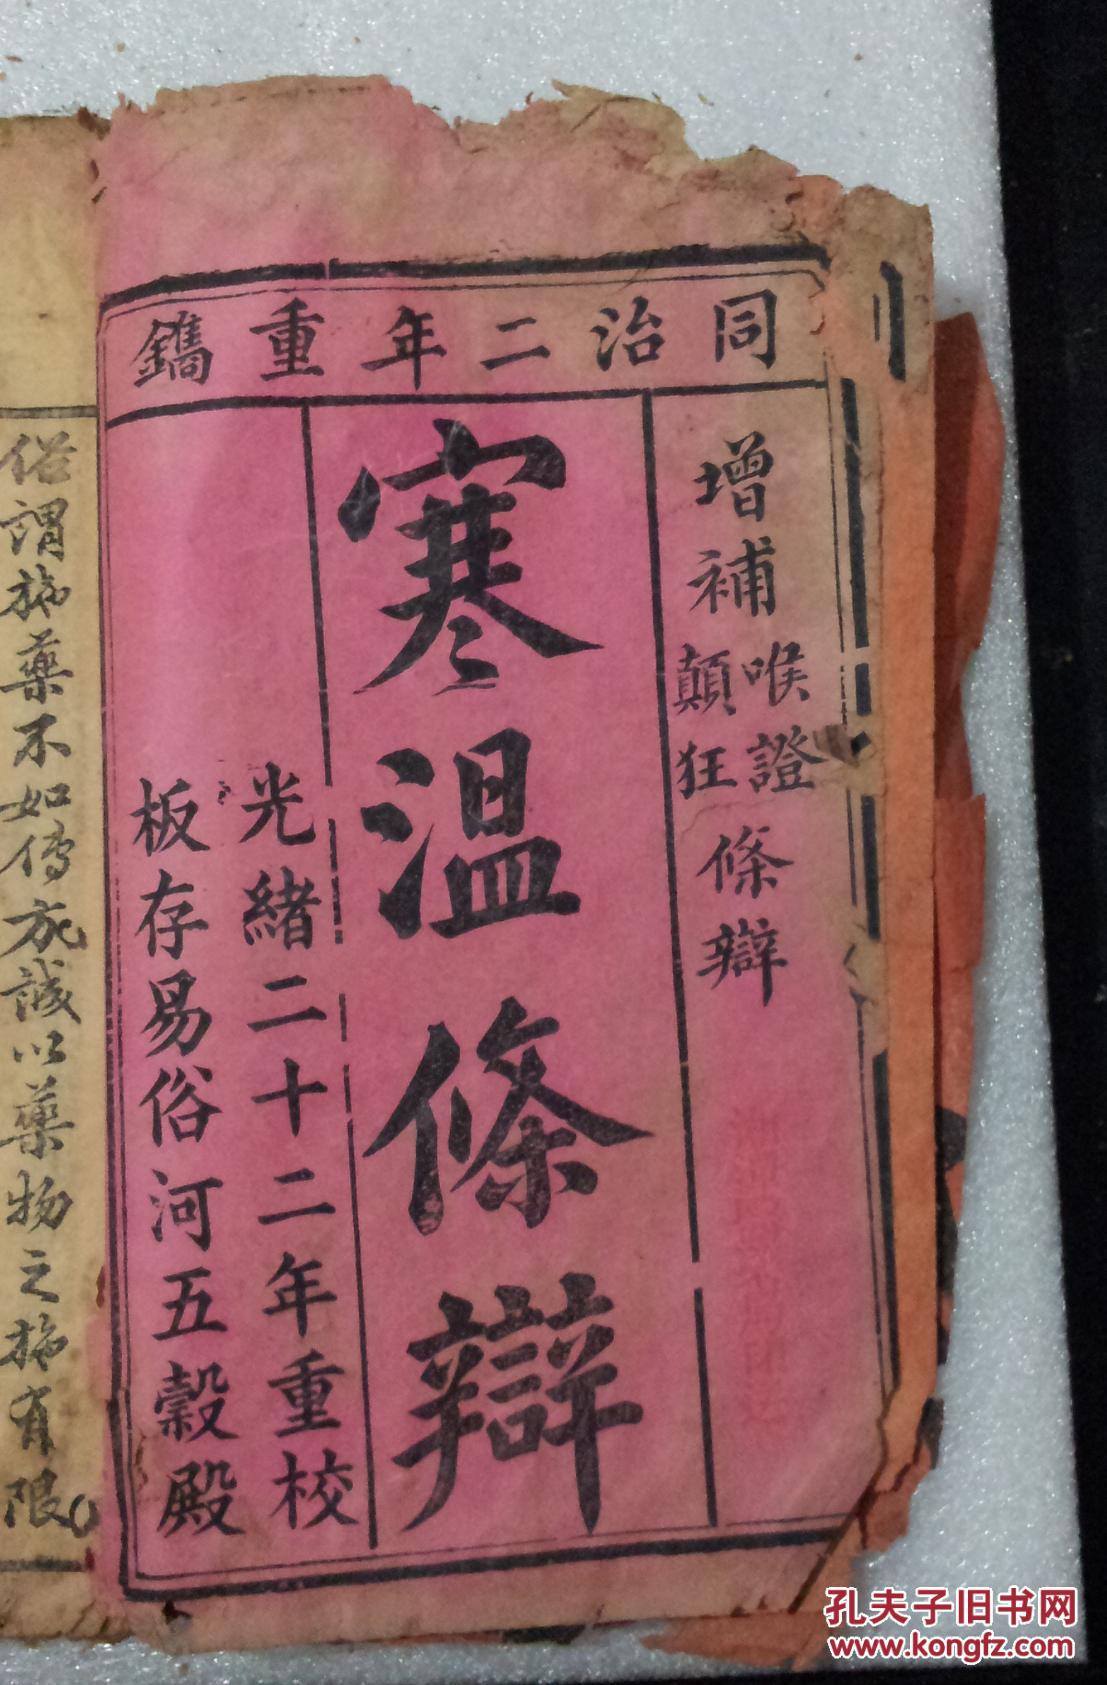 同治二年重鐫
增補喉證顛狂條辯
寒溫條辯
光緒二十二年重校
板存易俗河五穀殿
俗謂施藥不如傳方誠以藥物之施有限
孔夫子旧书网
www.kongfz.com